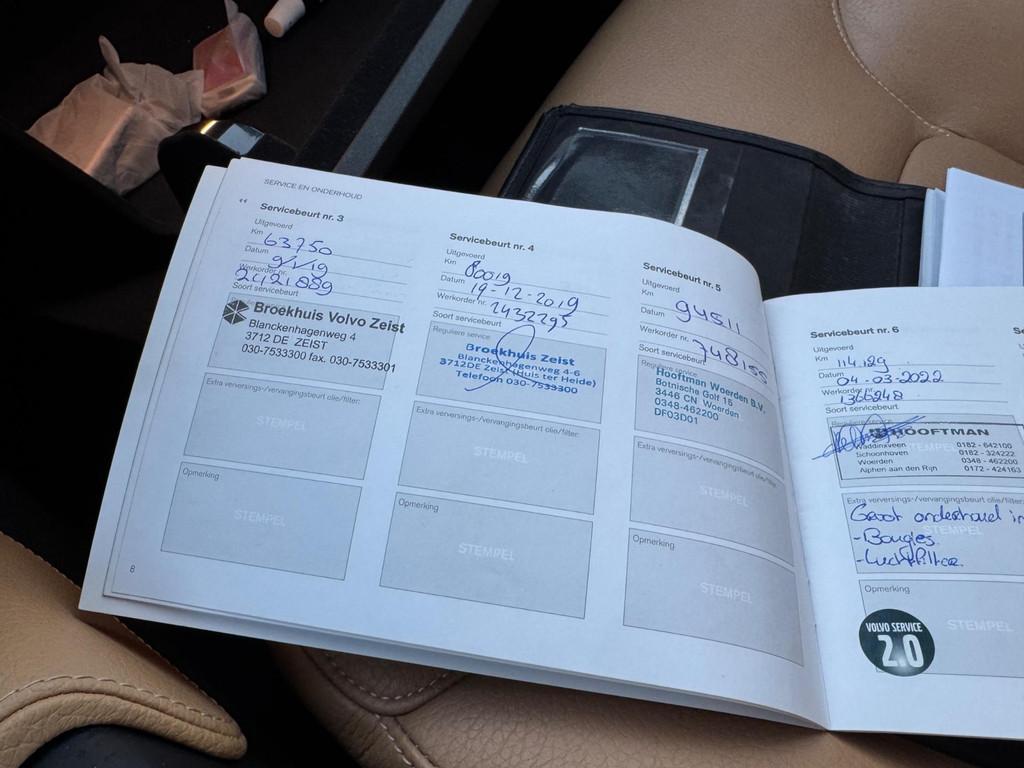 SERVICE EN ONDERHOUD
Servicebeurt nr. 3
Uitgevoerd
Km 63750
Datum 9/1/19
Werkorder nr. 2421889
Soort servicebeurt
Broekhuis Volvo Zeist
Blanckenhagenweg 4
3712 DE ZEIST
030-7533300 fax. 030-7533301
Extra verversings-/vervangingsbeurt olie/filter:
STEMPEL
Opmerking
STEMPEL
8
Servicebeurt nr. 4
Uitgevoerd
Km 80019
Datum 19-12-2019
Werkorder nr. 2432295
Soort servicebeurt
Reguliere service
Broekhuis Zeist
Blanckenhagenweg 4-6
3712DE Zeist (Huis ter Heide)
Telefoon 030-7533300
Extra verversings-/vervangingsbeurt olie/filter:
STEMPEL
Opmerking
STEMPEL
Servicebeurt nr. 5
Uitgevoerd
Km
Datum 94511
Werkorder nr.
Soort servicebeurt 748155
Reguliere service
Hooftman Woerden B.V.
Botnische Golf 15
3446 CN Woerden
0348-462200
DF03D01
Extra verversings-/vervangingsbeurt olie/filter:
STEMPEL
Opmerking
STEMPEL
Servicebeurt nr. 6
Uitgevoerd
Km 114.129
Datum 04-03-2022
Werkorder nr. 1366248
Soort servicebeurt
Reguliere service
HOOFTMAN
Waddinxveen 0182 - 642100
Schoonhoven 0182 - 324222
Woerden 0348 - 462200
Alphen aan den Rijn 0172 - 424163
Extra verversings-/vervangingsbeurt olie/filter:
Groot onderhoud in
STEMPEL
- Bougies
- Luchtfilter
Opmerking
STEMPEL
VOLVO SERVICE
2.0